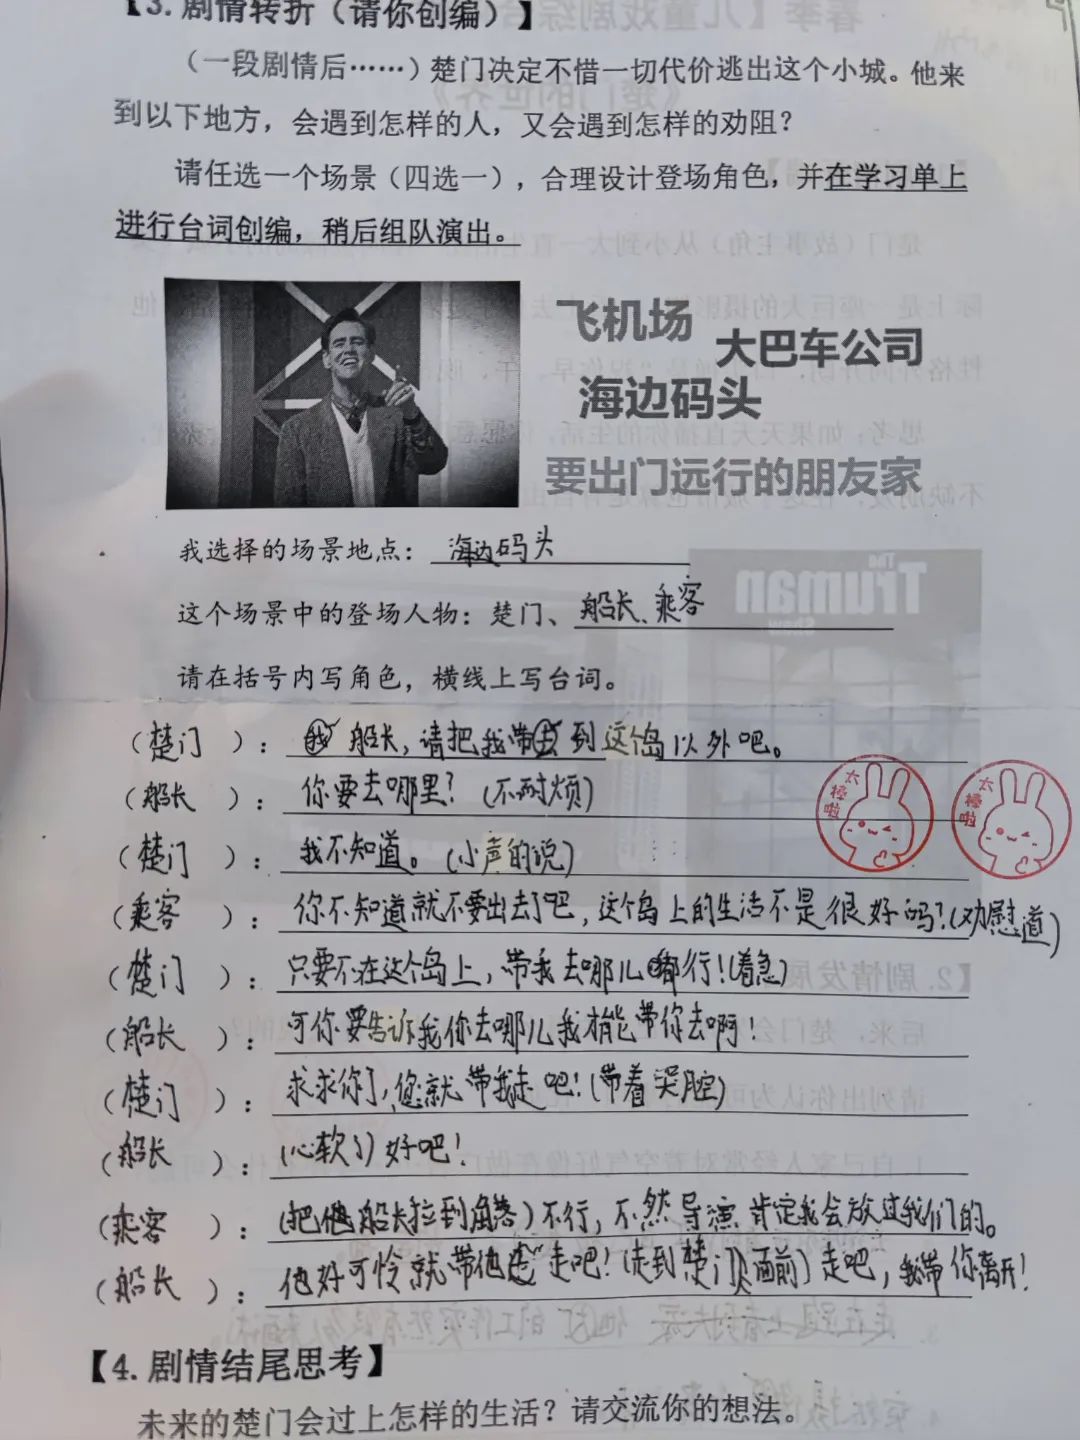 【3.剧情转折（请你创编）】
（一段剧情后……）楚门决定不惜一切代价逃出这个小城。他来
到以下地方，会遇到怎样的人，又会遇到怎样的劝阻？
请任选一个场景（四选一），合理设计登场角色，并在学习单上
进行台词创编，稍后组队演出。
飞机场
大巴车公司
海边码头
要出门远行的朋友家
我选择的场景地点：海边码头
这个场景中的登场人物：楚门、船长、乘客
请在括号内写角色，横线上写台词。
（楚门）：船长，请把我带到这个岛以外吧。
（船长）：你要去哪里？（不耐烦）
太棒啦
太棒啦
（楚门）：我不知道。（小声的说）
（乘客）：你不知道就不要出去了吧，这个岛上的生活不是很好吗？（劝慰道）
（楚门）：只要不在这个岛上，带我去哪儿都行！（着急）
（船长）：可你要告诉我你去哪儿我才能带你去啊！
（楚门）：求求你了，您就带我走吧！（带着哭腔）
（船长）：（心软了）好吧！
（乘客）：（把船长拉到角落）不行，不然导演肯定我会放过我们的。
（船长）：他好可怜就带他走吧！（走到楚门面前）走吧，我带你离开！
【4.剧情结尾思考】
未来的楚门会过上怎样的生活？请交流你的想法。